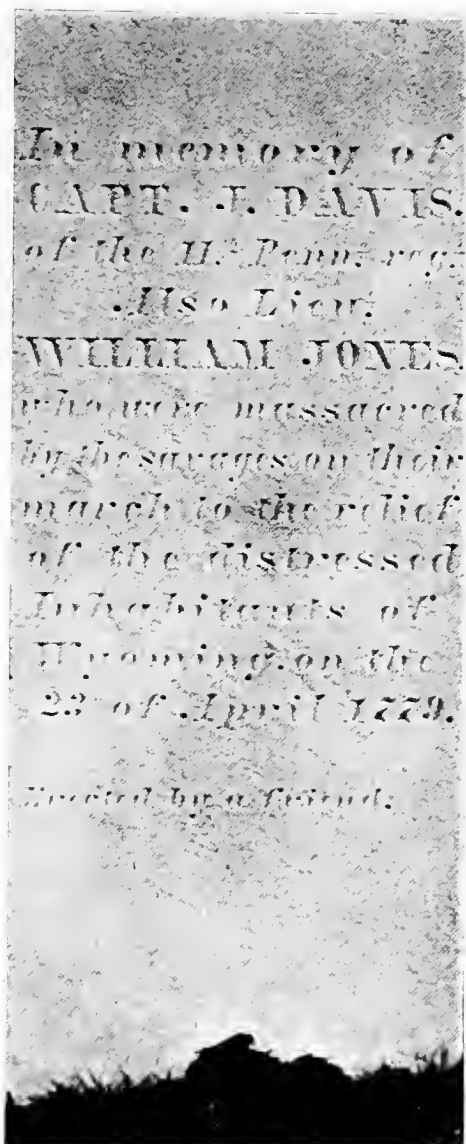 In memory of
CAPT. J. DAVIS.
of the 11.th Penn. reg.
Also Lieu.
WILLIAM JONES.
who were massacred
by the savages on their
march to the relief
of the distressed
Inhabitants of
Wyoming. on the
23 of April 1779.
Erected by a friend.